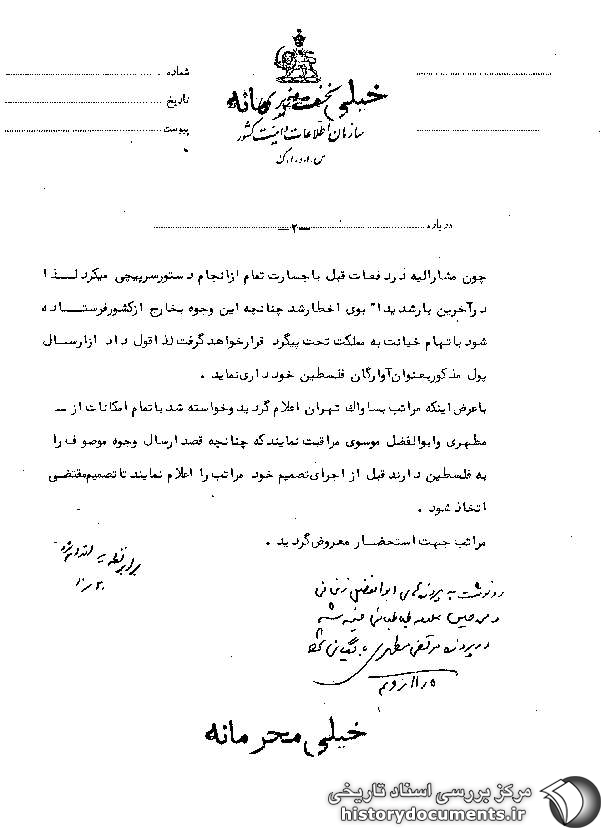 شماره
تاریخ
پیوست
خیلی محرمانه
سازمان اطلاعات و امنیت کشور
س.ا.و.ا.ک
درباره
ـ۲ـ
چون مشارالیه در دفعات قبل با جسارت تمام از انجام دستور سرپیچی میکرد لـــذا
در آخرین بار شدیدا" بوی اخطار شد چنانچه این وجوه بخارج از کشور فرستـــاده
شود با تهام خیانت به مملکت تحت پیگرد قرار خواهد گرفت لذا قول داد از ارســال
پول مذکور بعنوان آوارگان فلسطین خود داری نماید .
با عرض اینکه مراتب بساواك تهران اعلام گردید و خواسته شد با تمام امکانات از ــ
مطهری و ابوالفضل موسوی مراقبت نمایند که چنانچه قصد ارسال وجوه موصوف را
به فلسطین دارند قبل از اجرای تصمیم خود مراتب را اعلام نمایند تا تصمیم مقتضی
اتخاذ شود .
مراتب جهت استحضـار معروض گردید .
رونوشت به پرونده های ابوالفضل زنجانی
در پرونده مرتضی مطهری بایگانی
خیلی محرمانه
مرکز بررسی اسناد تاریخی
historydocuments.ir